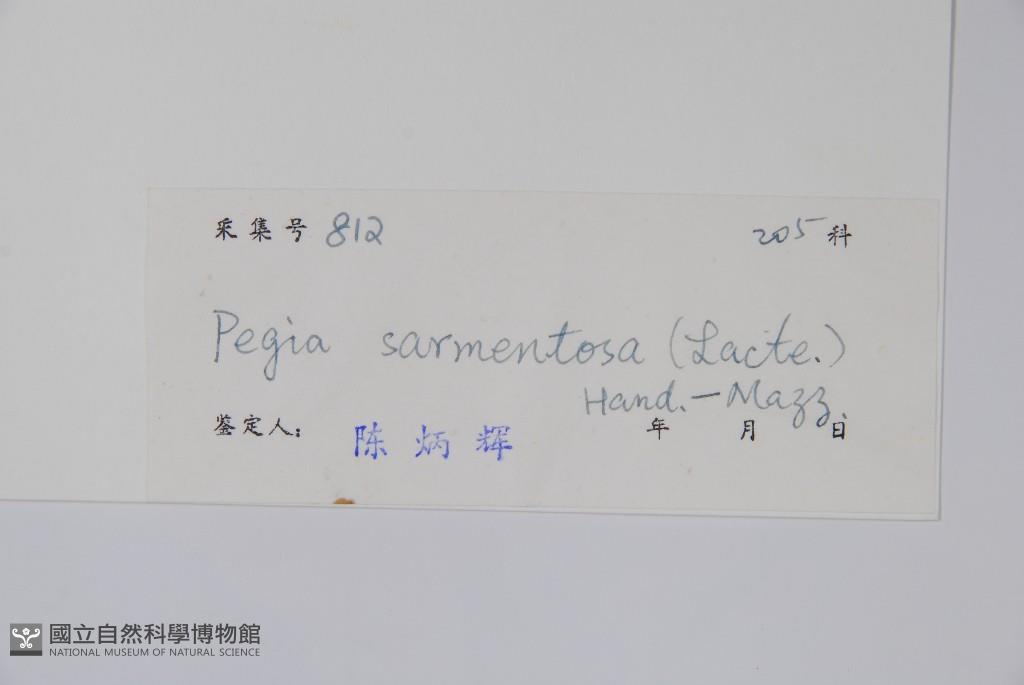 采集号 812 205 科
Pegia sarmentosa (Lacte.)
Hand.-Mazz.
鉴定人: 陈炳辉 年 月 日
國立自然科學博物館
NATIONAL MUSEUM OF NATURAL SCIENCE